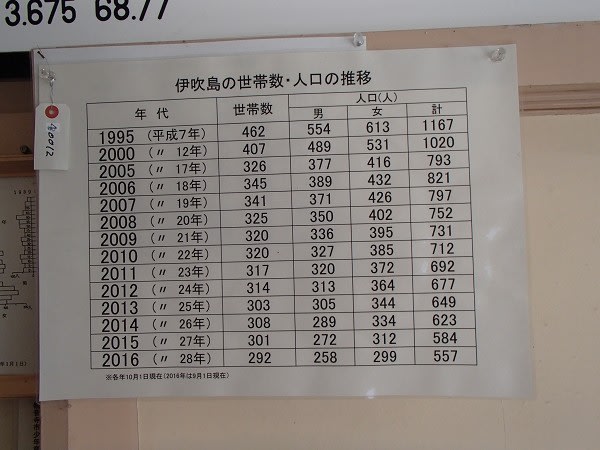 3.675 68.77
伊吹島の世帯数・人口の推移
年 代 世帯数 人口(人)
男 女 計
1995 (平成7年) 462 554 613 1167
2000 (〃 12年) 407 489 531 1020
2005 (〃 17年) 326 377 416 793
2006 (〃 18年) 345 389 432 821
2007 (〃 19年) 341 371 426 797
2008 (〃 20年) 325 350 402 752
2009 (〃 21年) 320 336 395 731
2010 (〃 22年) 320 327 385 712
2011 (〃 23年) 317 320 372 692
2012 (〃 24年) 314 313 364 677
2013 (〃 25年) 303 305 344 649
2014 (〃 26年) 308 289 334 623
2015 (〃 27年) 301 272 312 584
2016 (〃 28年) 292 258 299 557
※各年10月1日現在(2016年は9月1日現在)